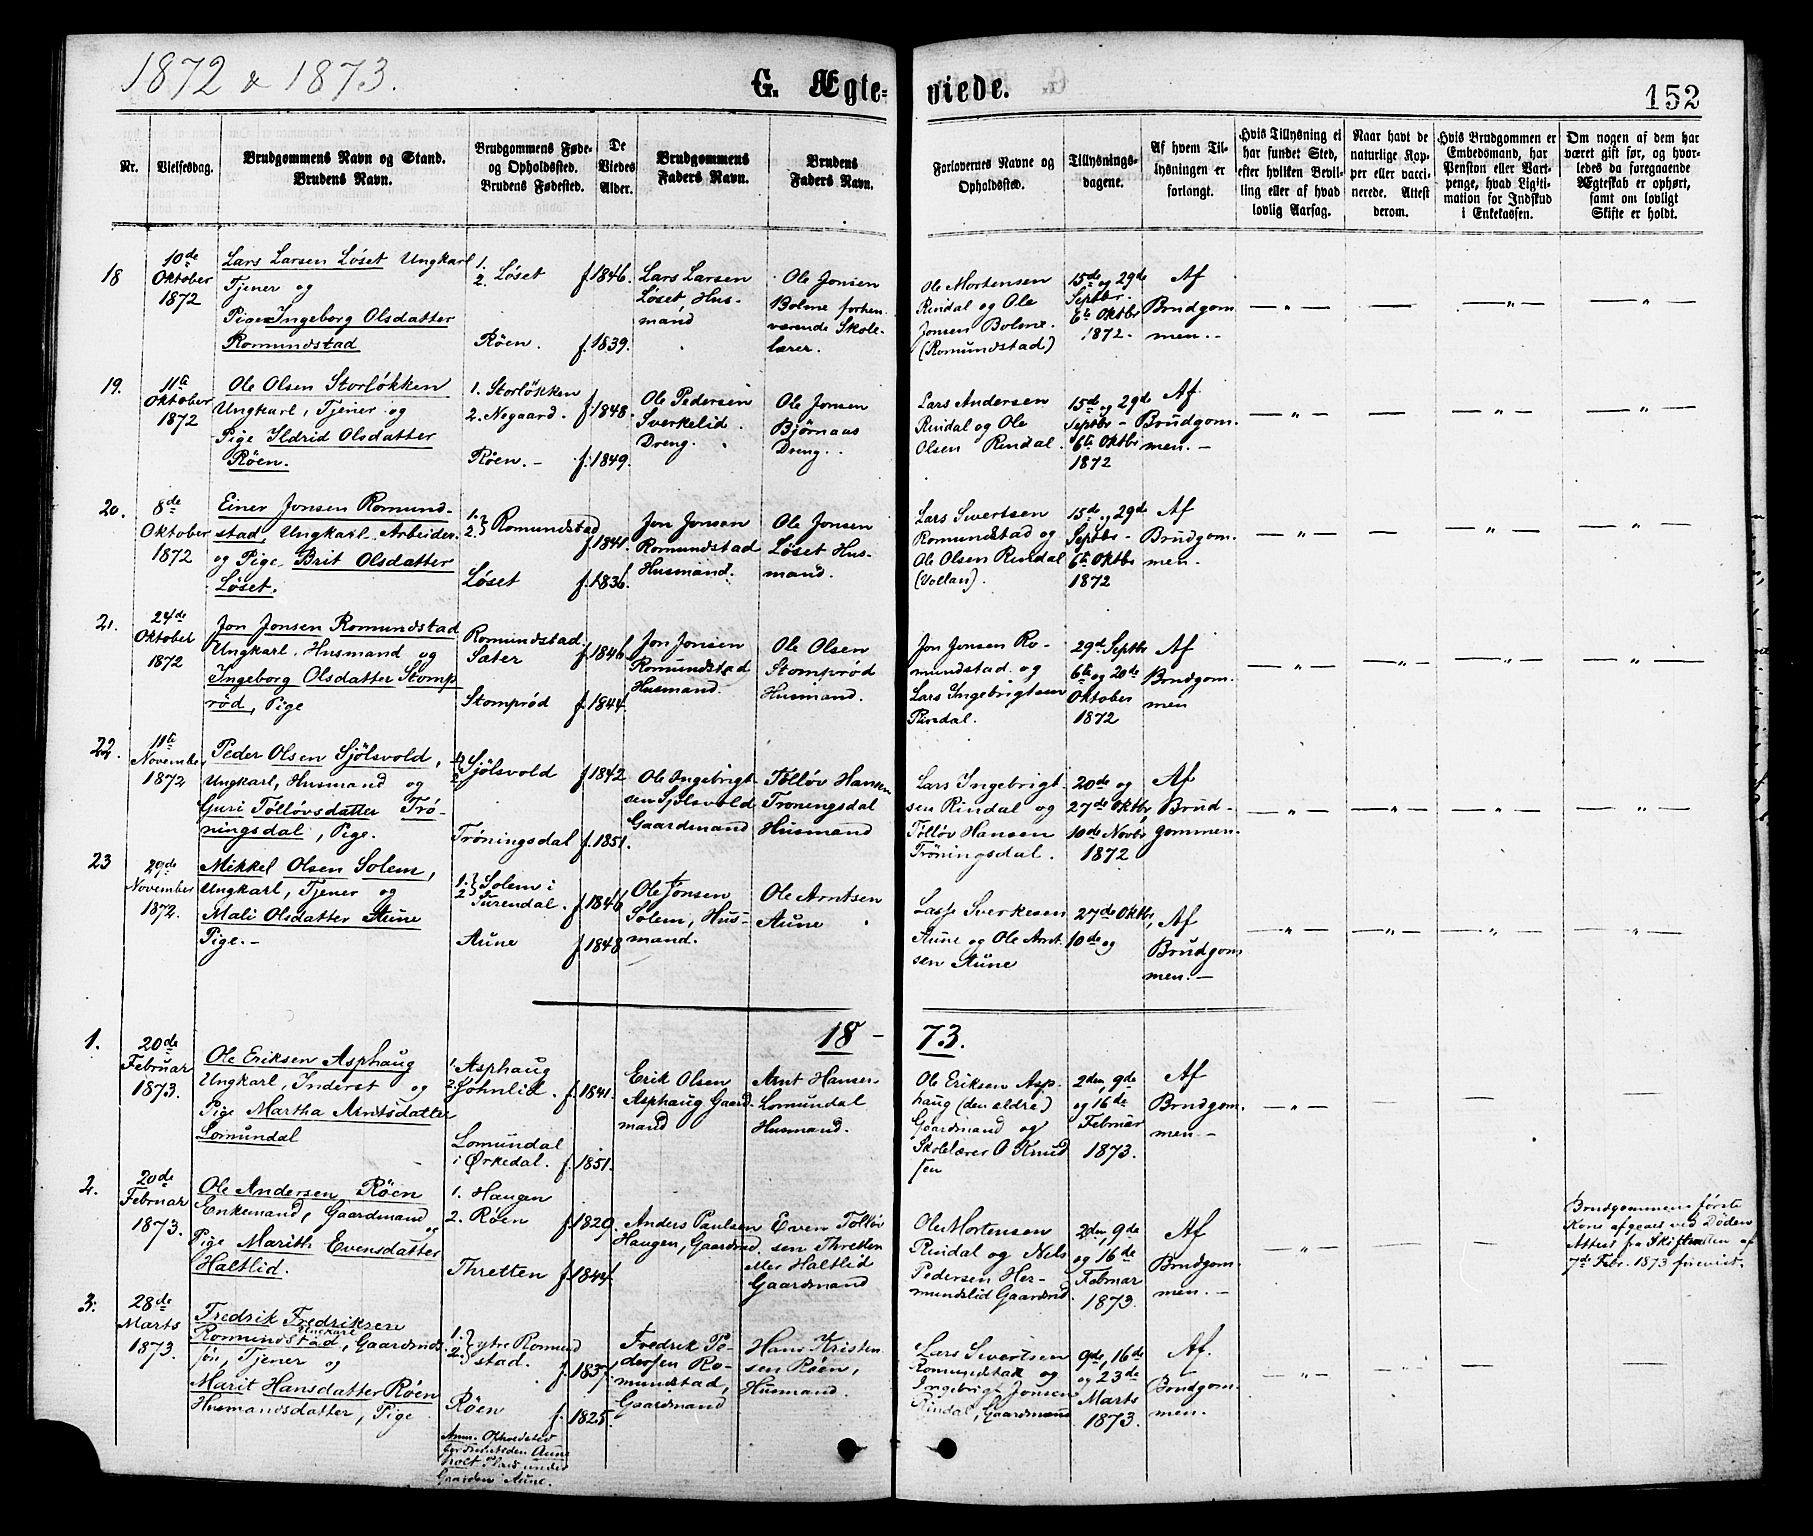 1872 & 1873.
G. Ægte-
viede.
152
Nr.
Vielsesdag.
Brudgommens Navn og Stand.
Brudens Navn.
Brudgommens Føde-
og Opholdssted.
Brudens Fødested.
De
Viedes
Alder.
Brudgommens
Faders Navn.
Brudens
Faders Navn.
Forlovernes Navne og
Opholdssted.
Tillysnings-
dagene.
Af hvem Til-
lysningen er
forlangt.
Hvis Tillysning ei
har fundet Sted,
efter hvilken Bevil-
ling eller af hvad
lovlig Aarsag.
Naar havt de
naturlige Kop-
per eller vacci-
nerede. Attest
derom.
Hvis Brudgommen er
Embedsmand, har
Pension eller Vart-
penge, hvad Ligiti-
mation for Indskud
i Enkekassen.
Om nogen af dem har
været gift før, og hvor-
ledes da foregaaende
Ægteskab er ophørt,
samt om lovligt
Skifte er holdt.
18
10de
Oktober
1872
Lars Larsen Løset Ungkarl
Tjener og
Pige Ingeborg Olsdatter
Romundstad
1.
2. Løset
Røen.
f. 1846.
f. 1839.
Lars Larsen
Løset Hus-
mand
Ole Jonsen
Bolme forhen
værende Skole-
lærer.
Ole Mortensen
Rindal og Ole
Jonsen Bolme.
(Romundstad)
15de og 29de
Septbr.
6te Oktbr
1872.
Af
Brudgom
men.-
19.
11te
Oktober
1872
Ole Olsen Storløkken
Ungkarl, Tjener og
Pige Ildrid Olsdatter
Røen.
1. Storløkken
2. Negaard.
Røen.-
f. 1848.
f. 1849.
Ole Pedersen
Sverkelid
Dreng.
Ole Jonsen
Bjørnaas
Dreng.
Lars Andersen
Rindal og Ole
Olsen Rindal.
15de og 29de
Septbr-
6te Oktbr
1872
Af
Brudgom.
men.-
20.
8de
Oktober
1872
Einer Jonsen Romund-
stad, Ungkarl, Arbeider.
og Pige, Brit Olsdatter
Løset.
1.
2. Romundstad
Løset
f. 1841.
f. 1836.
Jon Jonsen
Romundstad
Husmand.
Ole Jonsen
Løset Hus-
mand.
Lars Sivertsen
Romundstad og
Ole Olsen Rindal
(Vollan).
15de og 29de
Septbr-
6te Oktbr
1872
Af
Brudgom.
men.
21.
24de
Oktober
1872
Jon Jonsen Romundstad
Ungkarl, Husmand og
Ingeborg Olsdatter Stomp
rød, Pige
Romundstad
Sæter
Stomprød
f. 1846
f. 1844.
Jon Jonsen
Romundstad
Husmand.
Ole Olsen
Stomprød
Husmand.
Jon Jonsen Ro-
mundstad og
Lars Ingebrigtsen
Rindal.
29de Septbr
6te og 20de
Oktober
1872
Af
Brudgom.
men
22.
11te
November
1872
Peder Olsen Sjölsvold,
Ungkarl, Husmand og
Guri Tølløvsdatter Trö-
ningsdal, Pige.
1.
2. Sjölsvold
Tröningsdal
f. 1842
f. 1851.
Ole Ingebrigt
sen Sjölsvold
Gaardmand
Tølløv Hansen
Tröningsdal
Husmand
Lars Ingebrigt-
sen Rindal og
Tølløv Hansen
Tröningsdal.
20de og
27de Oktbr,
10de Novbr
1872
Af
Brud-
gommen.
23
29de
November
1872.
Mikkel Olsen Solem,
Ungkarl, Tjener og
Mali Olsdatter Aune
Pige.-
1. Solem i
2. Surendal.
Aune
f. 1846
f. 1848
Ole Jonsen
Solem, Hus-
mand.
Ole Arntsen
Aune
Lasse Sverkesen
Aune og Ole Arnt.
sen Aune
27de Oktbr,
10de og
Af
Brudgom
men.-
18-
73.
1.
20de
Februar
1873.
Ole Eriksen Asphaug
Ungkarl, Inderst og
Pige Martha Arntsdatter
Lomundal
1. Asphaug
2.
Lomundal
i Ørkedal.
f. 1841.
f. 1851.
Erik Olsen
Asphaug Gaard-
mand
Arnt Hansen
Lomundal
Husmand.
Ole Eriksen Asp-
haug (den ældre)
Gaardmand og
Skolelærer O Knud
sen
2den, 9de
og 16de
Februar
1873.
Af
Brudgom.
men.-
2.
20de
Februar
1873.
Ole Andersen Røen
Enkemand, Gaardmand og
Pige Marith Evensdatter
Haltlid.
1. Haugen
2. Røen
Thretten
f. 1829.
f. 1844.
Anders Paulsen
Haugen, Gaardmd.
Even Tølløv
sen Thretten
eller Haltlid
Gaardmand
Ole Mortensen
Rindal og Nels
Pedersen Her-
mundslid Gaardmd.
2den, 9de
og 16de
Februar
1873.
Af
Brudgom.
men.-
Brudgommens første
Kone afgaaet ved Døden
Attest fra Skifteretten af
7de Febr. 1873 forevist.
3.
28de
Marts
1873.
Fredrik Fredriksen
Romundstad, Gaardmds
søn, Tjener og
Marit Hansdatter Røen
Husmandsdatter, Pige
1.
2. ytre Romund
stad.
Røen
Anm. Opholdssted
Aune
Plads under
Gaarden Aune.
f. 1837
f. 1825.
Fredrik Pe-
dersen Ro-
mundstad,
Gaardmand
Hans Kristen
sen Røen,
Husmand.
Lars Sivertsen
Romundstad og
Ingebrigt Jonsen
Rindal, Gaardmænd
9de, 16de
og 23de
Marts
1873.
Af.
Brudgom.
men.-